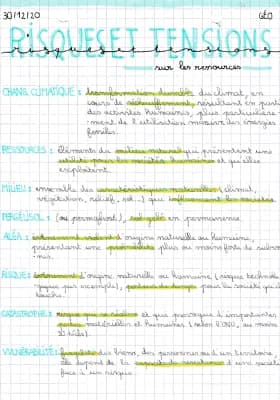 30/12/20 GÉO
RISQUES ET TENSIONS
risques et tensions
sur les ressources
CHANG. CLIMATIQUE : transformation durable du climat, en
cours de réchauffement, résultant en partie
des activités humaines, plus particulière-
-ment de l'utilisation massive des énergies
fossiles.
RESSOURCES : éléments du milieu naturel qui présentent une
utilité pour les sociétés humaines et qu'elles
exploitent.
MILIEU : ensemble des caractéristiques naturelles (climat,
végétation, relief, sol...) qui influencent les sociétés.
PERGÉLISOL : (ou permafrost), sol gelé en permanence.
ALÉA : évènement violent d'origine naturelle ou humaine,
présentant une probabilité plus ou moins forte de subve-
-nir.
RISQUE : évènement d'origine naturelle ou humaine (risque technolo-
-gique par exemple), porteur de danger pour la société qu'il
touche.
CATASTROPHE : risque qui se réalise et qui provoque d'importantes
pertes matérielles et humaines (selon l'ONU, au moins
décès).
VULNÉRABILITÉ : fragilité des biens, des personnes ou d'un territoire,
elle dépend de la capacité d'une société
face à un risque.